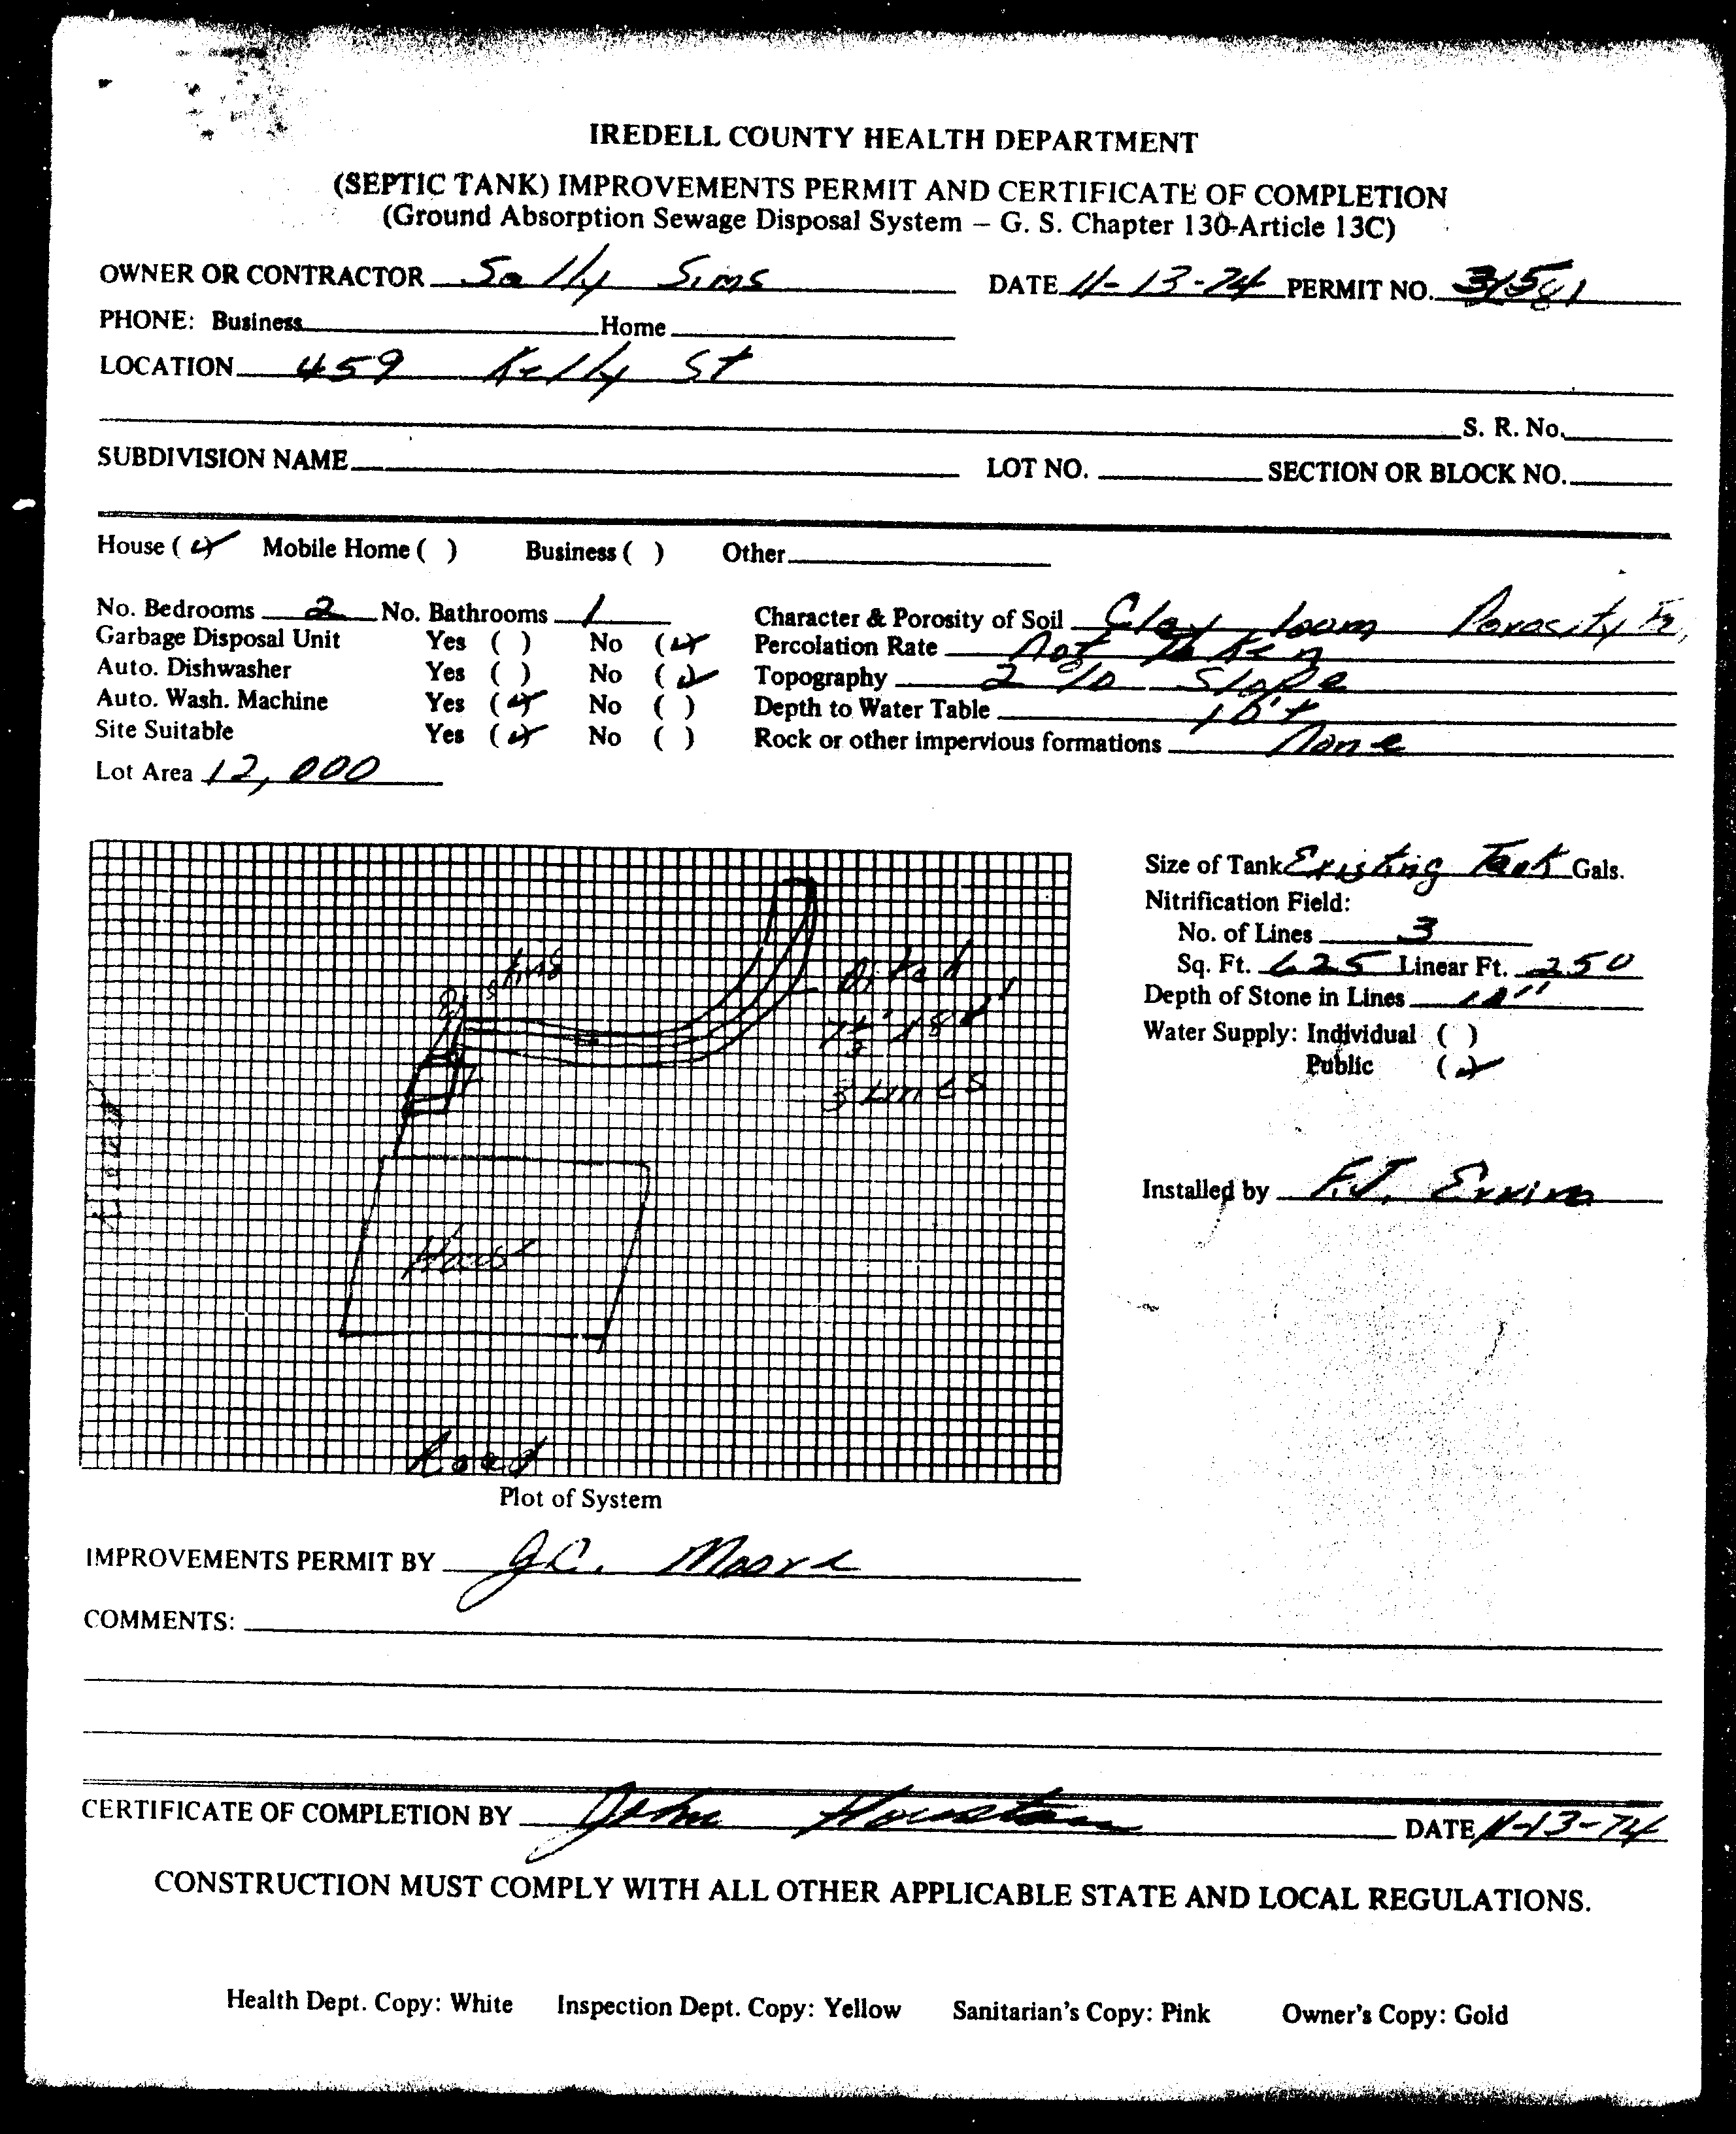 IREDELL COUNTY HEALTH DEPARTMENT
(SEPTIC TANK) IMPROVEMENTS PERMIT AND CERTIFICATE OF COMPLETION
(Ground Absorption Sewage Disposal System – G. S. Chapter 130-Article 13C)
OWNER OR CONTRACTOR Sally Sims DATE 11-13-74 PERMIT NO.
PHONE: Business Home
LOCATION 459 Kelly St
S. R. No.
SUBDIVISION NAME LOT NO. SECTION OR BLOCK NO.
House (✓) Mobile Home ( ) Business ( ) Other
No. Bedrooms 2 No. Bathrooms 1 Character & Porosity of Soil Clay loam Porosity
Garbage Disposal Unit Yes ( ) No (✓) Percolation Rate Not Taken
Auto. Dishwasher Yes ( ) No (✓) Topography 2 % Slope
Auto. Wash. Machine Yes (✓) No ( ) Depth to Water Table 10'+
Site Suitable Yes (✓) No ( ) Rock or other impervious formations None
Lot Area 12,000
Size of Tank Existing Tank Gals.
Nitrification Field:
No. of Lines 3
Sq. Ft. 625 Linear Ft. 250
Depth of Stone in Lines
Water Supply: Individual ( )
Public (✓)
3 Lines
Installed by F.J. Ervin
House
Road
Plot of System
IMPROVEMENTS PERMIT BY J.C. Moore
COMMENTS:
CERTIFICATE OF COMPLETION BY John Houston DATE 11-13-74
CONSTRUCTION MUST COMPLY WITH ALL OTHER APPLICABLE STATE AND LOCAL REGULATIONS.
Health Dept. Copy: White Inspection Dept. Copy: Yellow Sanitarian's Copy: Pink Owner's Copy: Gold